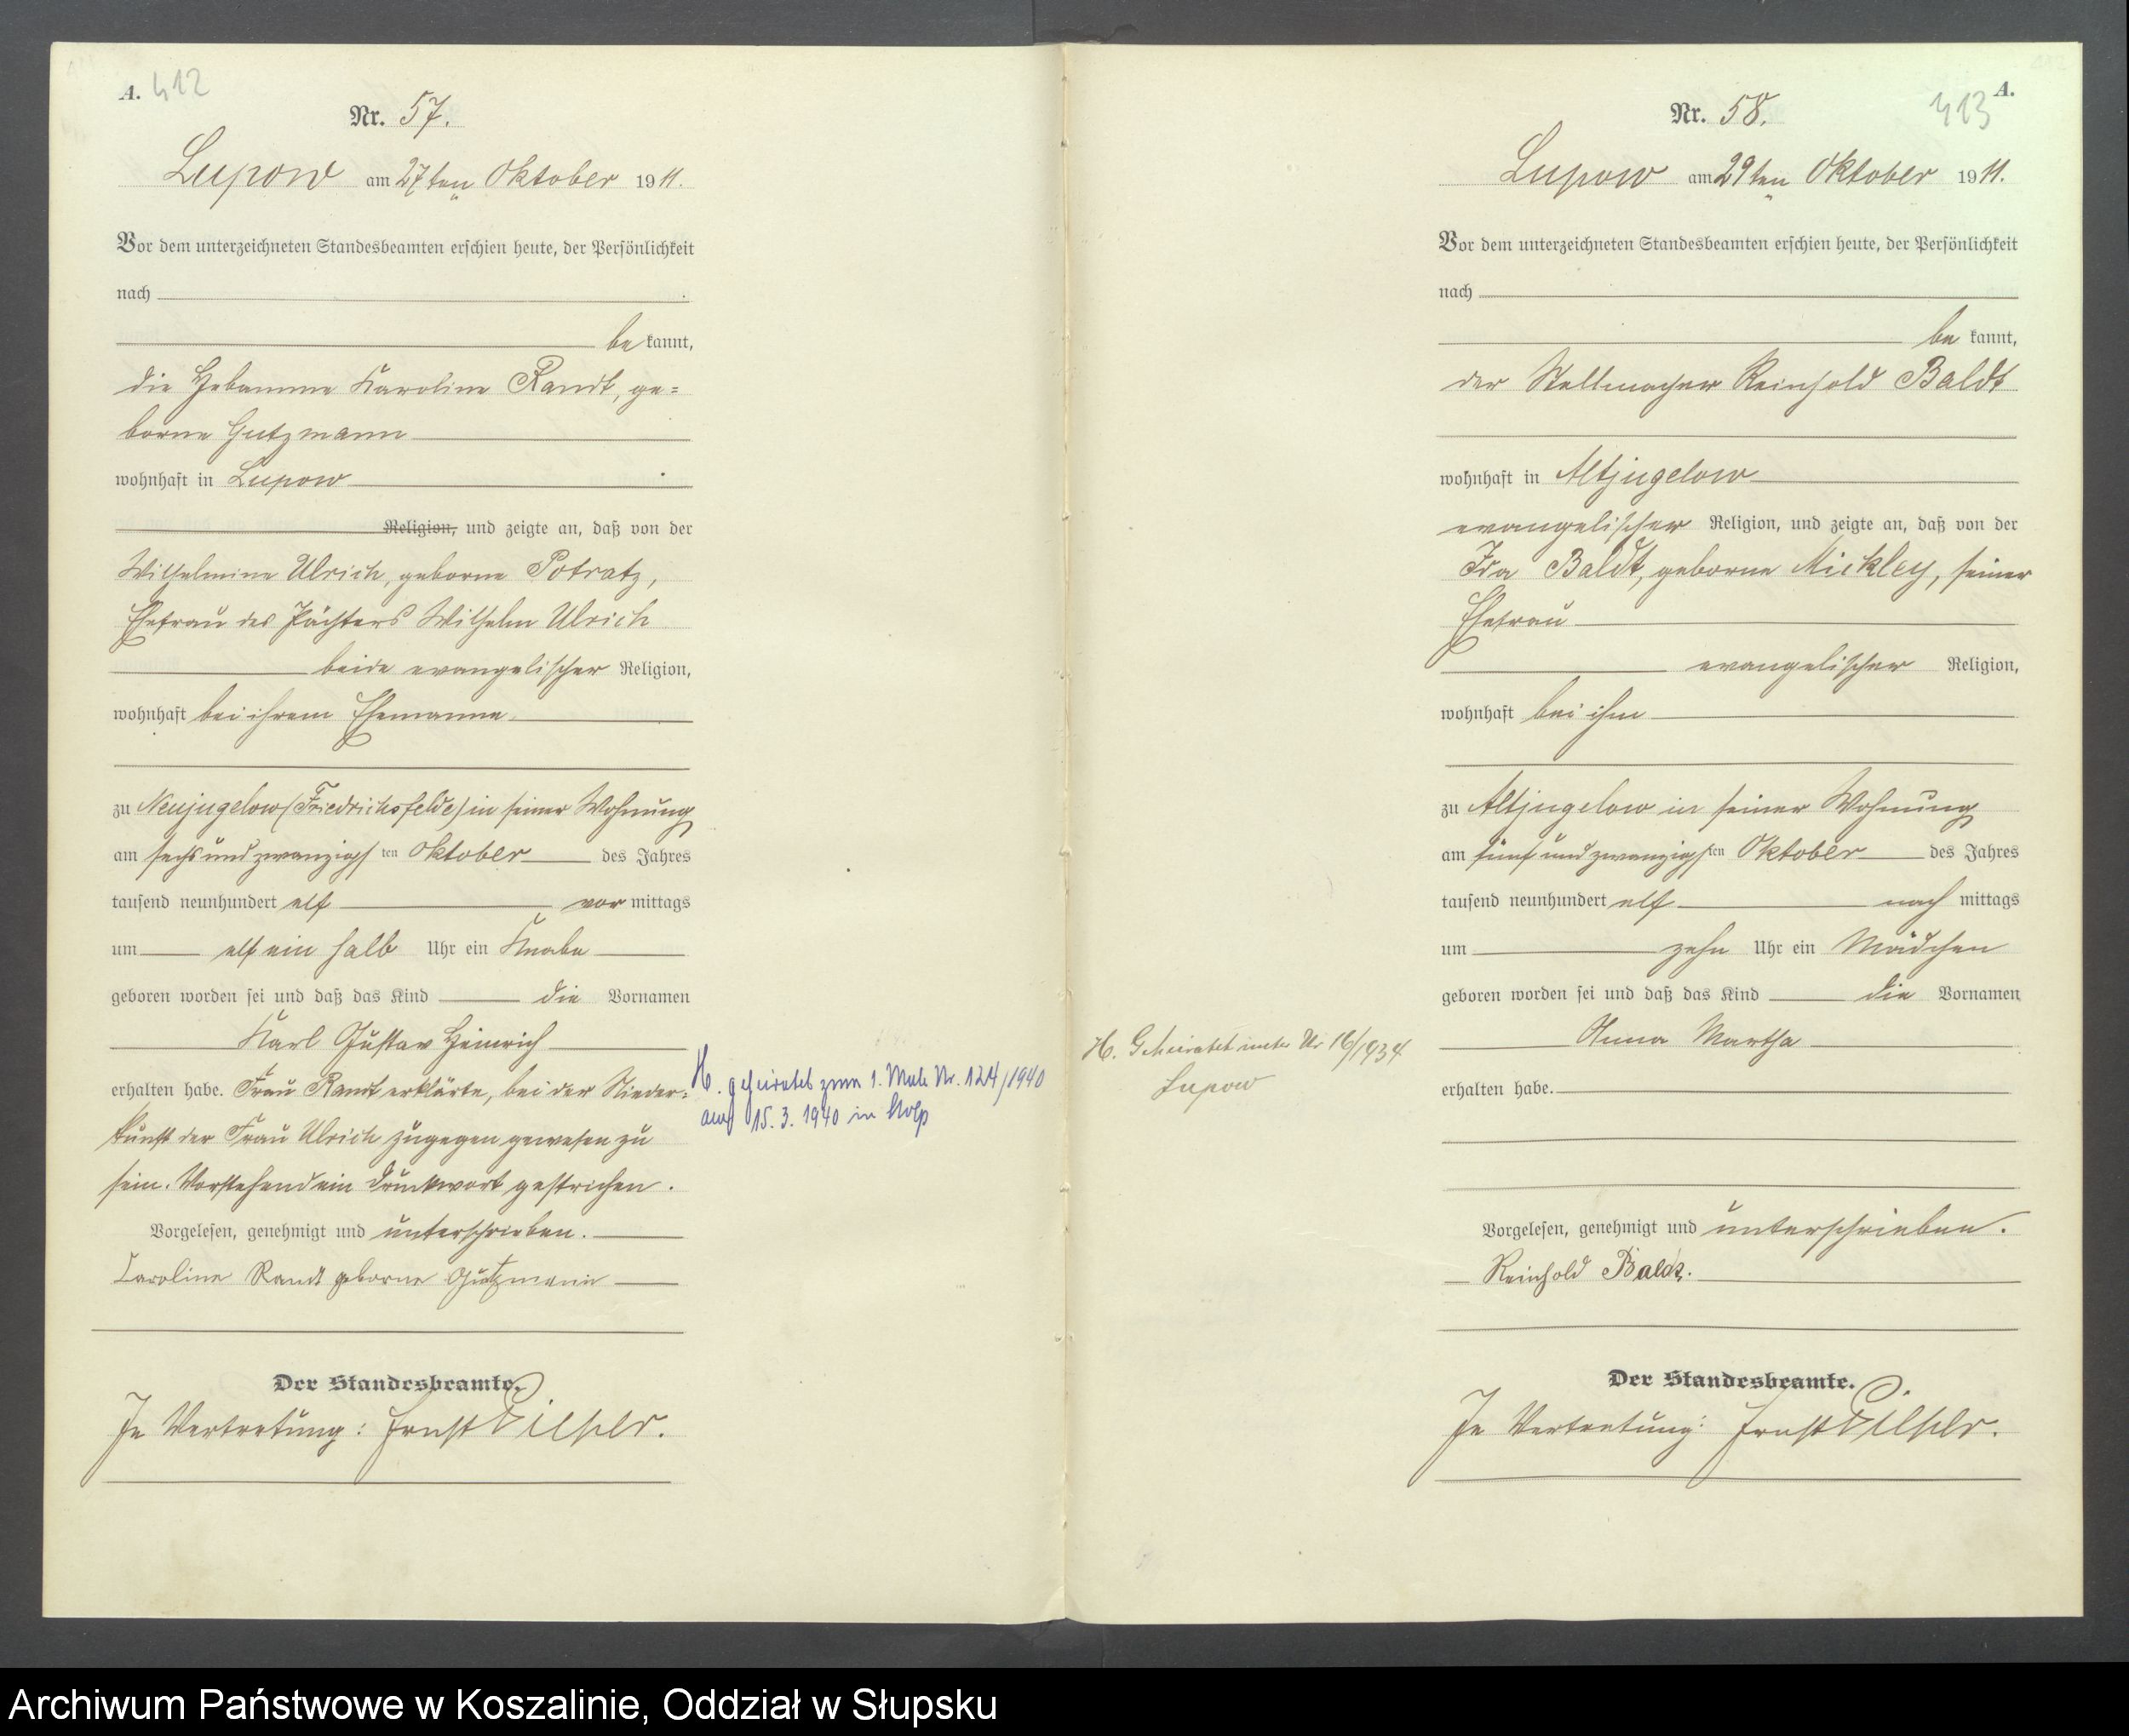 A. 412
Nr. 57.
Lupow am 27ten Oktober 1911.
Vor dem unterzeichneten Standesbeamten erschien heute, der Persönlichkeit
nach
be kannt,
die Hebamme Karoline Randt, ge=
borne Gutzmann
wohnhaft in Lupow
Religion, und zeigte an, daß von der
Wilhelmine Ulrich, geborne Potratz,
Ehefrau des Pächters Wilhelm Ulrich
beide evangelischer Religion,
wohnhaft bei ihrem Ehemanne
zu Neujugelow (Friedrichsfelde) in seiner Wohnung
am sechsundzwanzigsten Oktober des Jahres
tausend neunhundert elf vor mittags
um elf ein halb Uhr ein Knabe
geboren worden sei und daß das Kind die Vornamen
Karl Gustav Heinrich
erhalten habe. Frau Randt erklärte, bei der Nieder=
kunft der Frau Ulrich zugegen gewesen zu
sein. Vorstehend ein Druckwort gestrichen.
Vorgelesen, genehmigt und unterschrieben.
Caroline Randt geborne Gutzmann
Der Standesbeamte.
In Vertretung: Ernst
H. geheiratet zum 1. Male Nr. 124/1940
am 15. 3. 1940 in Stolp
A.
413
Nr. 58.
Lupow am 29ten Oktober 1911.
Vor dem unterzeichneten Standesbeamten erschien heute, der Persönlichkeit
nach
be kannt,
der Stellmacher Reinhold Baldt
wohnhaft in Altjugelow
evangelischer Religion, und zeigte an, daß von der
Ida Baldt, geborne Mickley, seiner
Ehefrau
evangelischer Religion,
wohnhaft bei ihm
zu Altjugelow in seiner Wohnung
am fünfundzwanzigsten Oktober des Jahres
tausend neunhundert elf nach mittags
um zehn Uhr ein Mädchen
geboren worden sei und daß das Kind die Vornamen
Anna Martha
erhalten habe.
Vorgelesen, genehmigt und unterschrieben.
Reinhold Baldt.
Der Standesbeamte.
In Vertretung: Ernst
H. Geheiratet unter Nr 16/1934
Lupow
Archiwum Państwowe w Koszalinie, Oddział w Słupsku